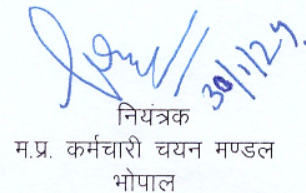 30/1/24
नियंत्रक
म.प्र. कर्मचारी चयन मण्डल
भोपाल